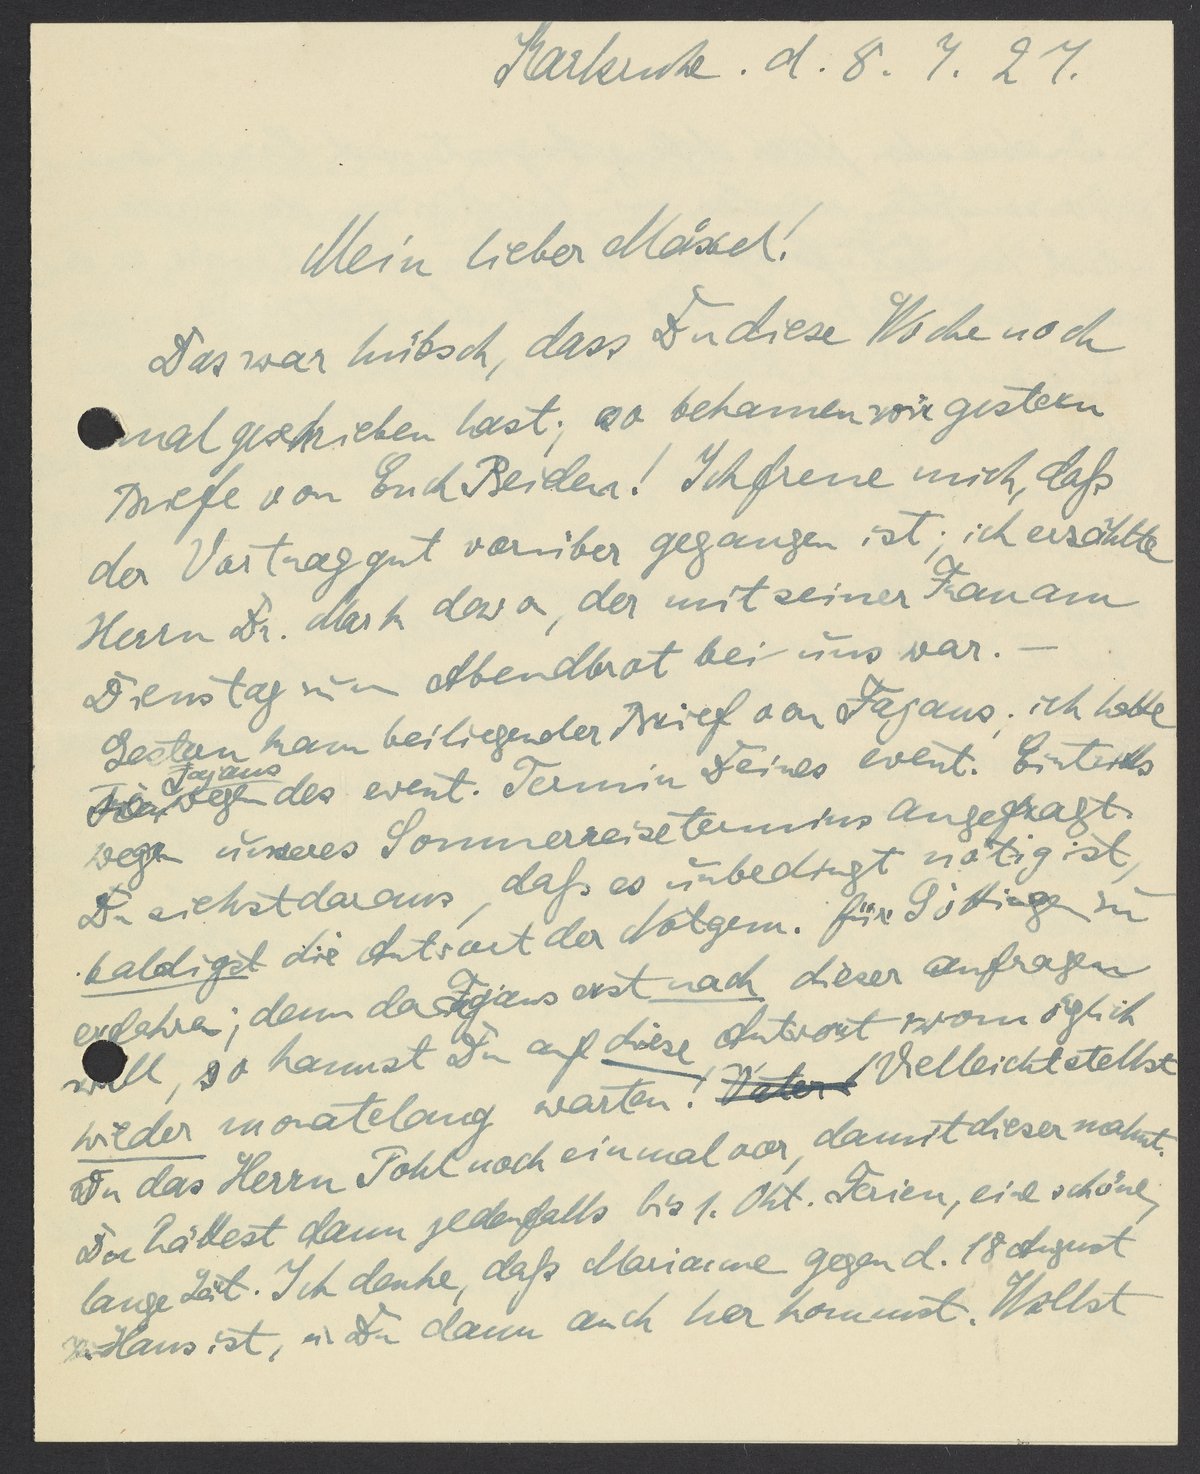 Karlsruhe. d. 8. 7. 27.
Mein lieber Mäxed!
Das war hübsch, dass Du diese Woche noch
mal geschrieben hast; so bekamen wir gestern
Briefe von Euch Beiden! Ich freue mich, daß
der Vortrag gut vorüber gegangen ist; ich erzählte
Herrn Dr. Mark davon, der mit seiner Frau am
Dienstag zum Abendbrot bei uns war. —
Gestern kam beiliegender Brief von Fajans; ich hatte
Fajans
wegen des event. Termin Deines event. Eintritts
wegen unseres Sommerreisetermins angefragt.
Du siehst daraus, daß es unbedingt nötig ist,
baldigst die Antwort der Notgem. für Göttingen zu
erfahren; denn da Fajans erst nach dieser anfragen
will, so kannst Du auf diese Antwort womöglich
wieder monatelang warten! Vater! Vielleicht stellst
Du das Herrn Pohl noch einmal vor, damit dieser mahnt.
Du hättest dann jedenfalls bis 1. Okt. Ferien, eine schöne,
lange Zeit. Ich denke, daß Marianne gegen d. 18 August
z. Haus ist, u Du dann auch her kommst. Willst